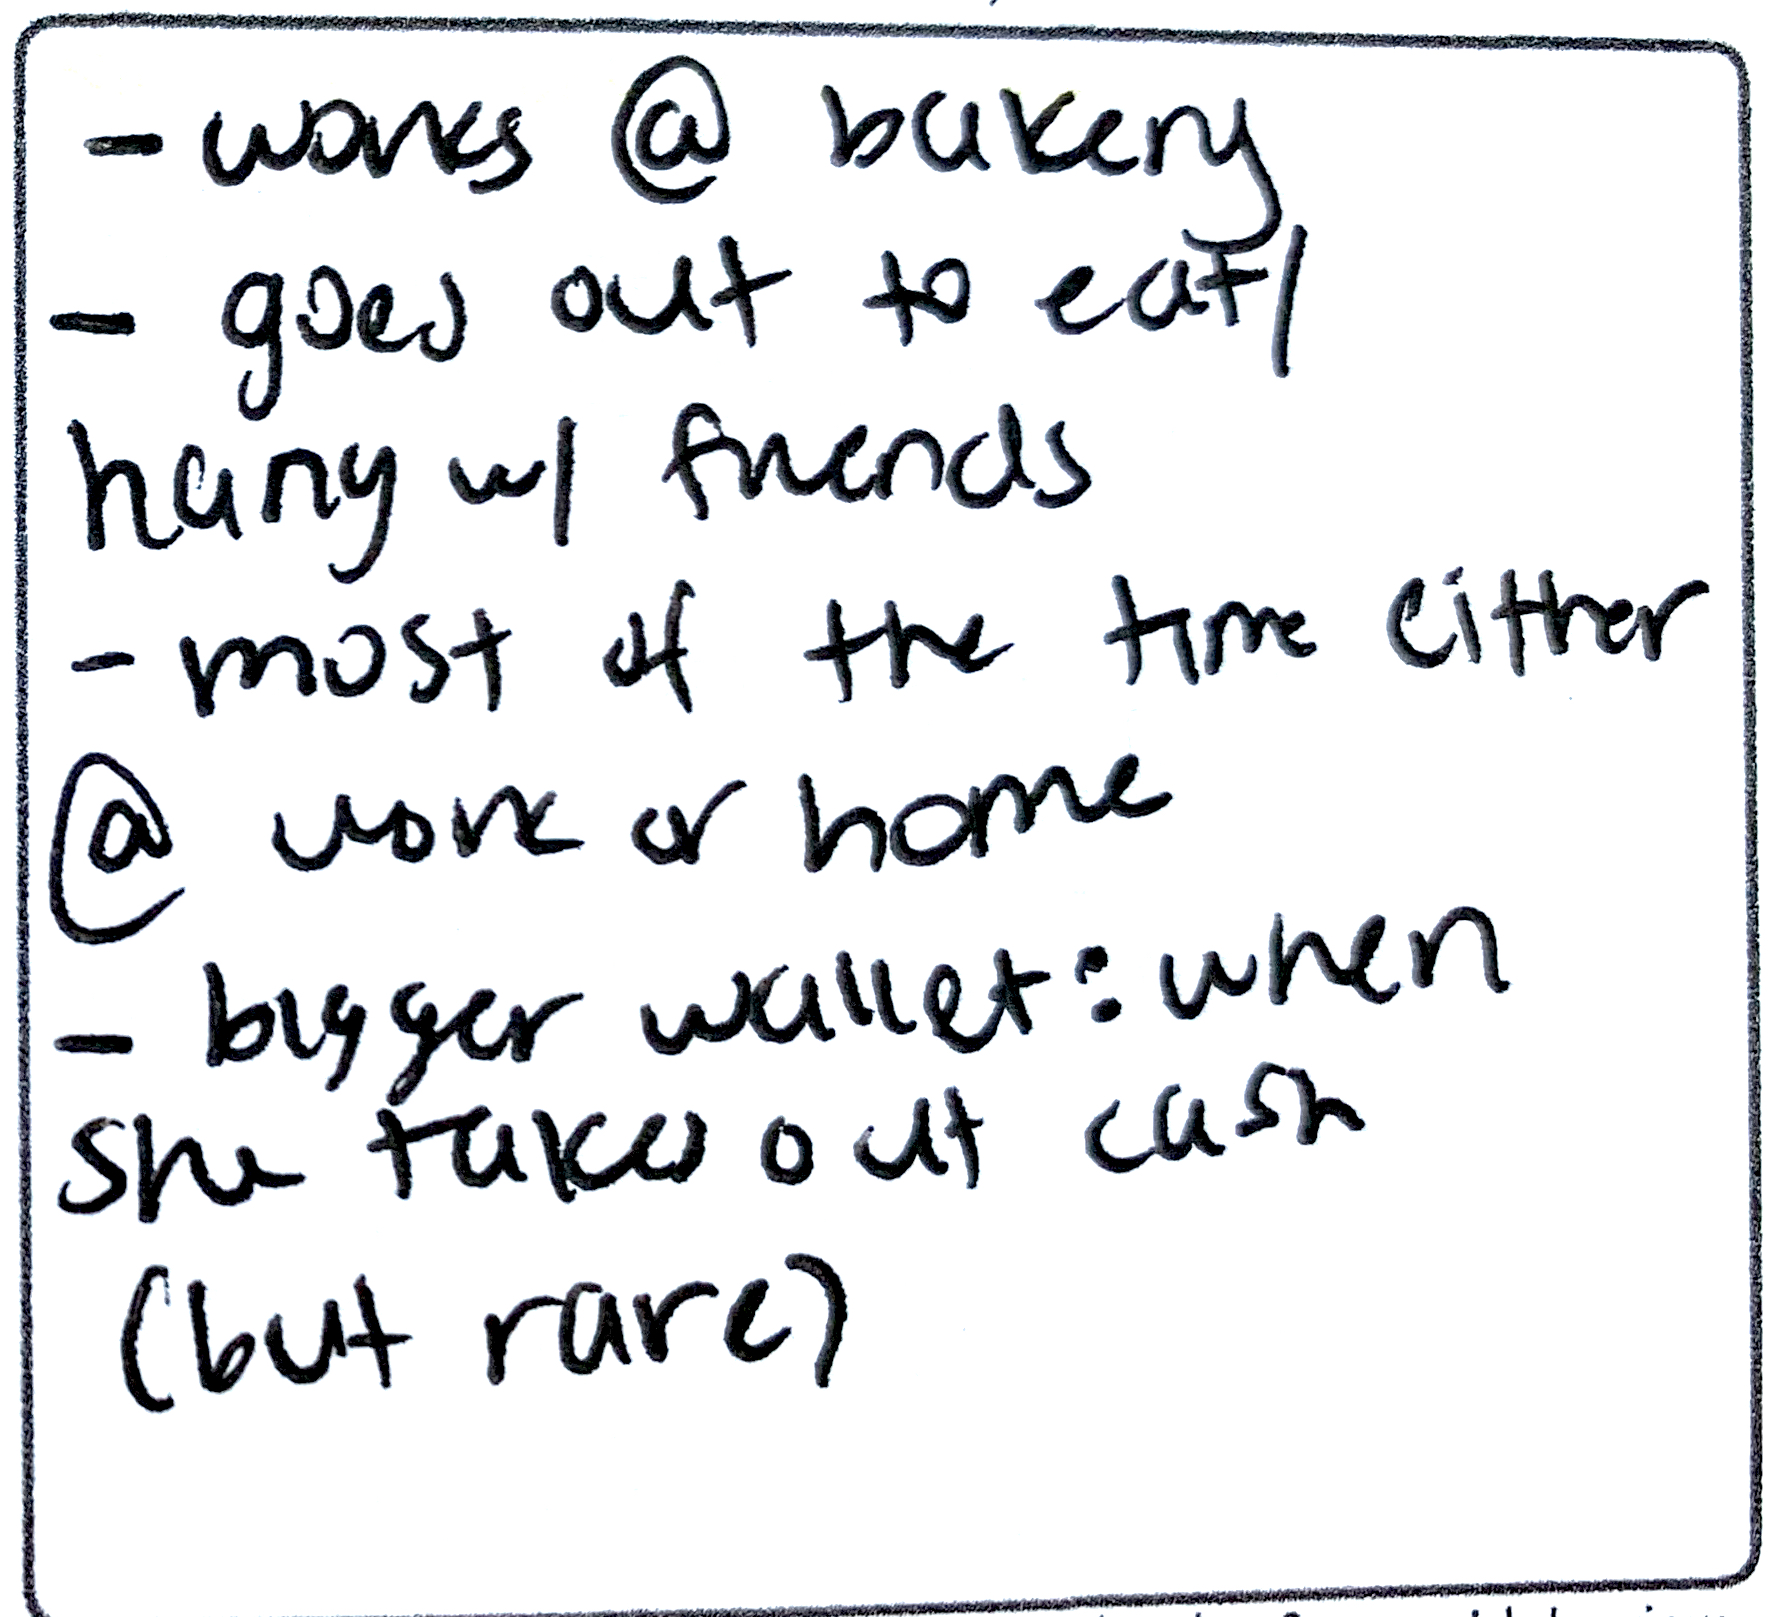 - works @ bakery
- goes out to eat/
hang w/ friends
- most of the time either
@ work or home
- bigger wallet: when
she takes out cash
(but rare)